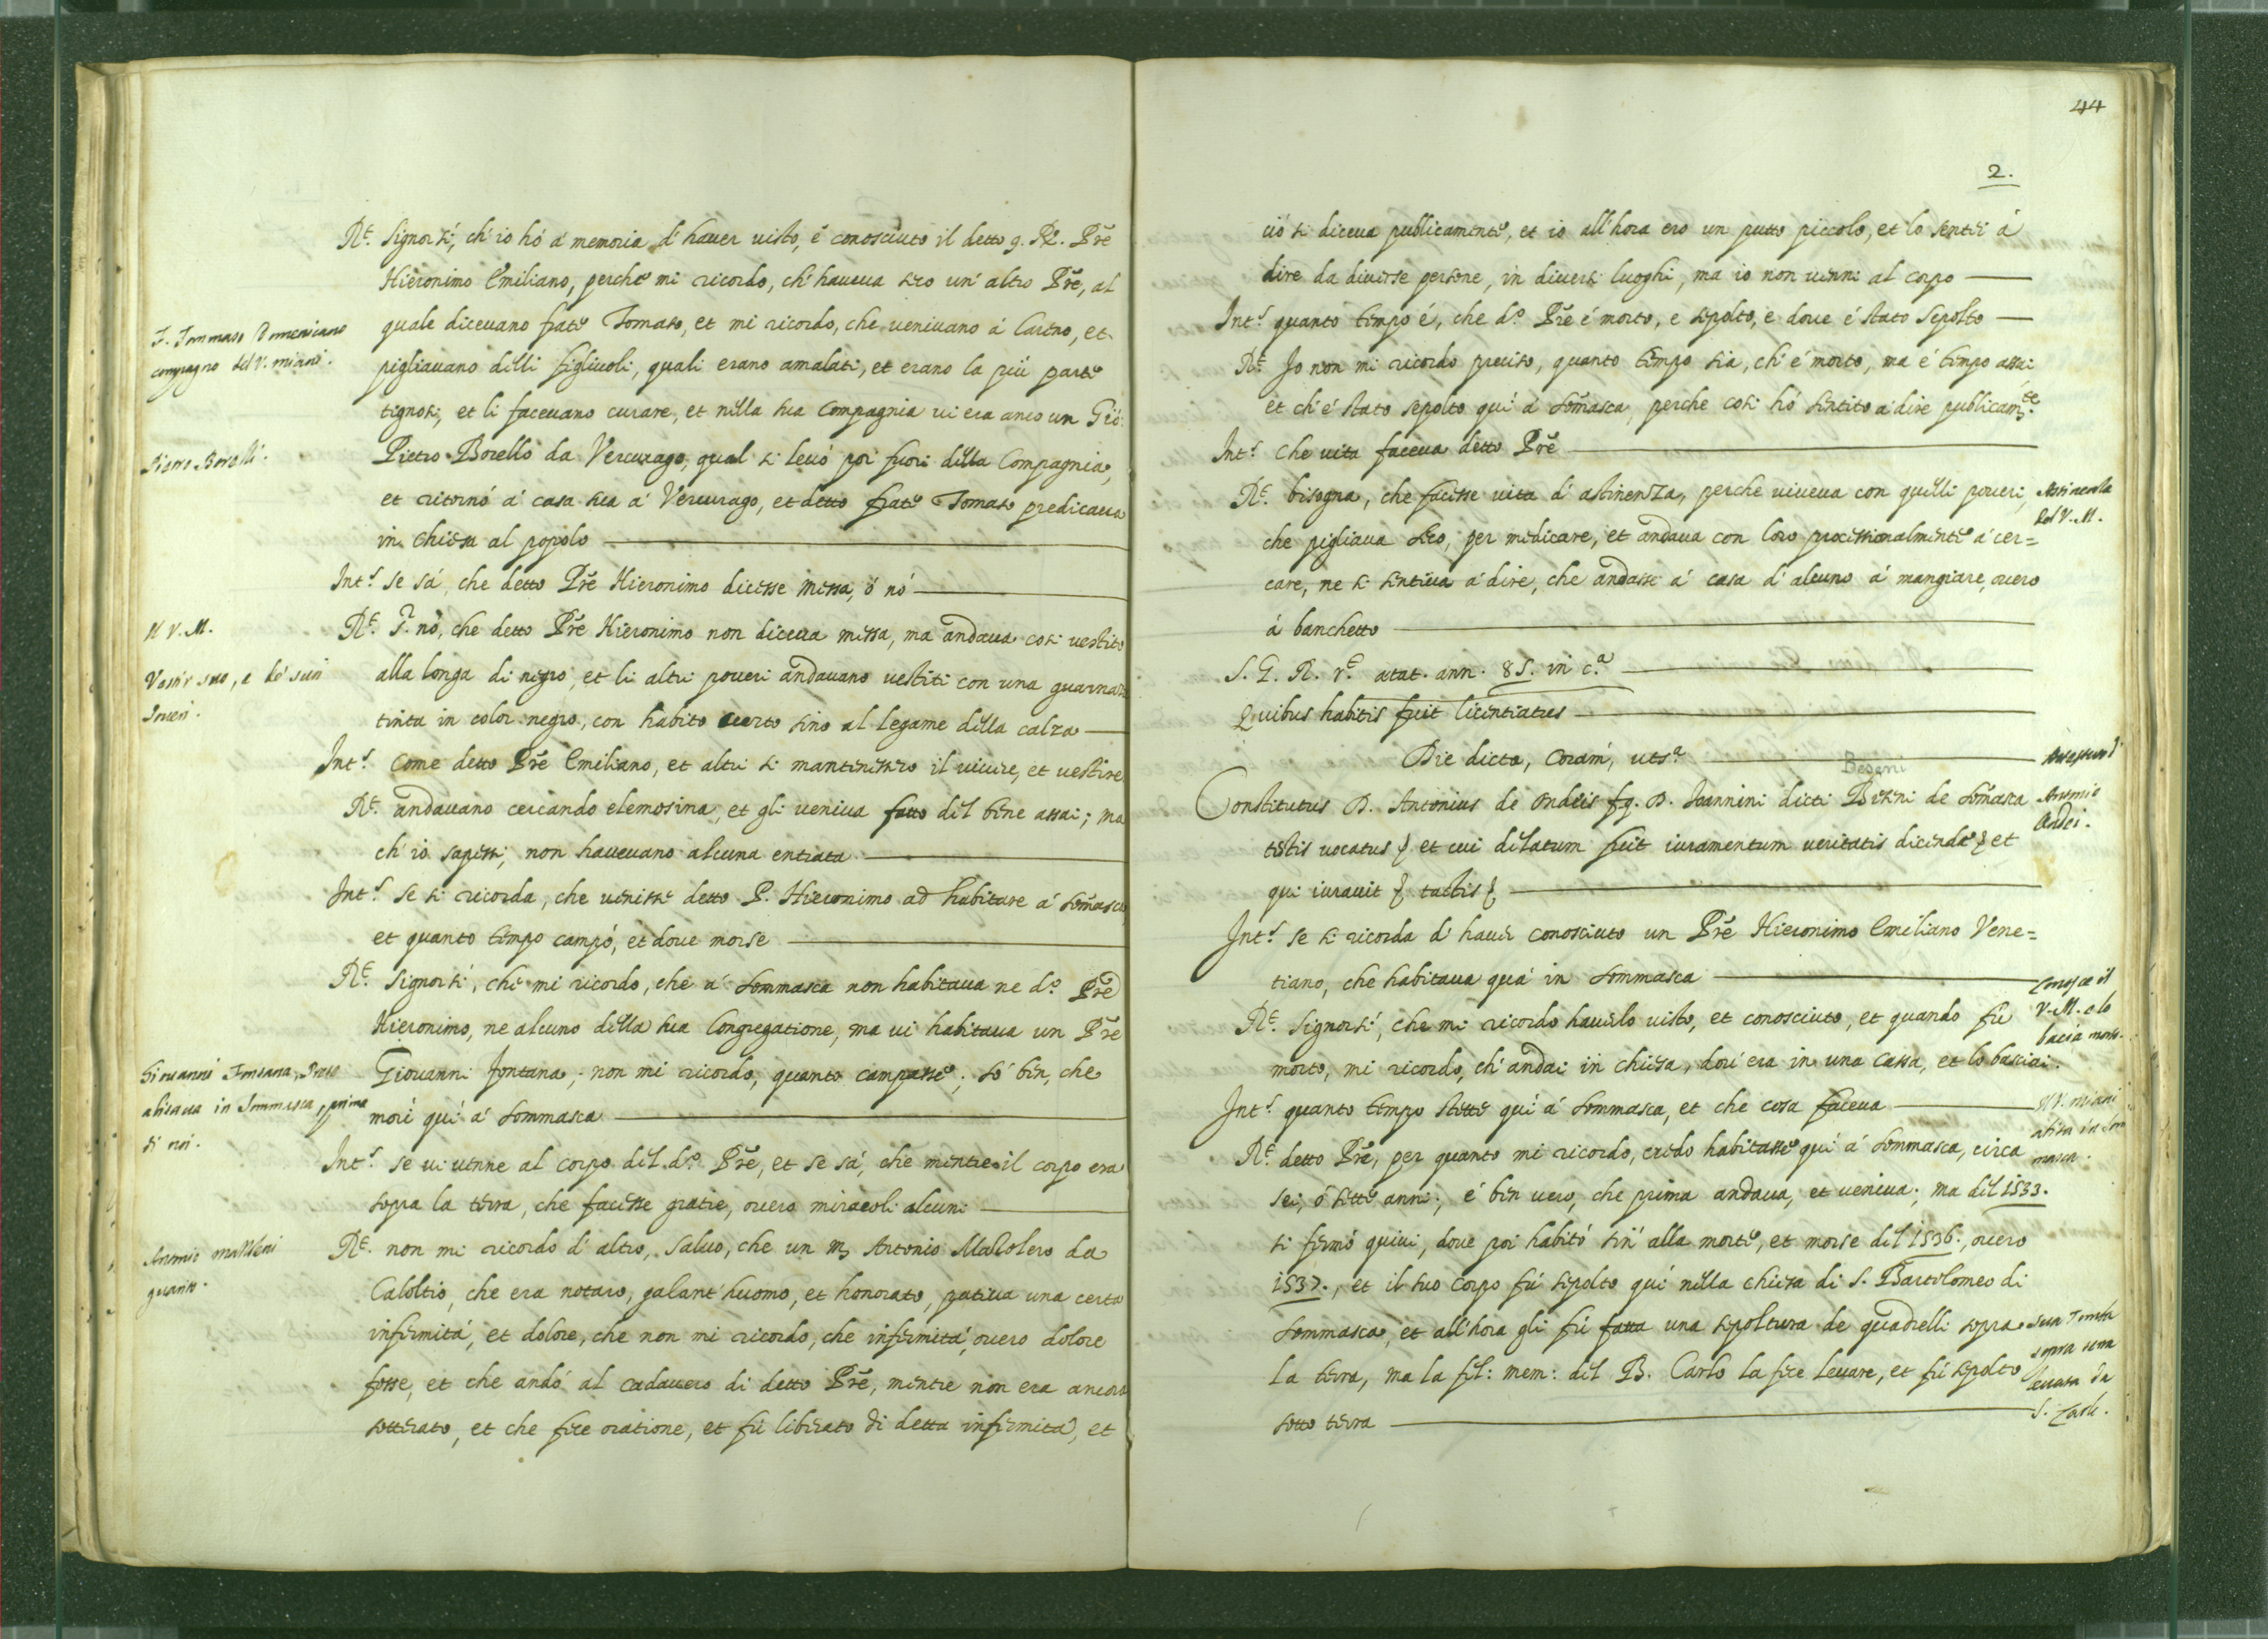 Rt. Signor sì, ch'io hò a' memoria d'hauer uisto, è conosciuto il detto q. R. Prē
Hieronimo Emiliano, perche mi ricordo, ch'haueua seco un'altro Prē, al
quale diceuano frate Tomaso, et mi ricordo, che ueniuano á Careno, et
F. Tommaso Domenicano
compagno del V. Miani.
pigliauano delli figliuoli, quali erano amalati, et erano la più parte
tignosi, et li faceuano curare, et nella sua Compagnia ui era anco un Gio:
Pietro Borelli.
Pietro Borello da Vercurago, qual si leuò poi fuori della Compagnia,
et ritornò a' casa sua a' Vercurago, et detto frate Tomaso predicaua
in chiesa al popolo
Int.s se sá, che detto Prē Hieronimo dicesse messa, ó nó
Il V. M.
Rt. S. nò, che detto Prē Hieronimo non diceua messa, ma andaua così uestito
Vestir suo, e de' suoi
alla longa di negro, et li altri poueri andauano uestiti con una guarnaza
Poueri.
tinta in color negro, con habito curto sino al legame della calza
Int.s Come detto Prē Emiliano, et altri si mantenessero il uiuere, et uestire
Rt. andauano cercando elemosina, et gli ueniua fatto del bene assai; ma
ch'io sapessi, non haueuano alcuna entrata
Int.s se si ricorda, che uenisse detto P. Hieronimo ad habitare á Somāsca
et quanto tempo campó, et doue morse
Rt. Signor sì, che mi ricordo, che a' Sommasca non habitaua ne d.o Prē
Hieronimo, ne alcuno della sua Congregatione, ma ui habitaua un Prē
Giouanni Fontana, Prete
Giouanni Fontana, non mi ricordo, quanto campasse; só ben, che
abitaua in Sommasca prima
morì quì a' Sommasca
di noi.
Int.s se ui uenne al corpo del d.o Prē, et se sá, che mentre il corpo era
sopra la terra, che facesse gratie, ouero miracoli alcuni
Rt. non mi ricordo d'altro, saluo, che un m. Antonio Mazolero da
Caloltio, che era notaro, galant'huomo, et honorato, patiua una certa
infermitá, et dolore, che non mi ricordo, che infermitá, ouero dolore
fosse, et che andó al cadauero di detto Prē, mentre non era ancora
sotterato, et che fece oratione, et fù liberato di detta infermitá, et
44
2.
ció si diceua publicamente, et io all'hora ero un putto piccolo, et lo sentei á
dire da diuerse persone, in diuersi luoghi, ma io non uenni al corpo
Int.s quanto tempo é, che d.o Prē é morto, e sepolto, e doue é stato Sepolto
Rt. Io non mi ricordo preciso, quanto tempo sia, ch'é morto, ma é tempo assai
et ch'é stato sepolto quì á Somāsca, perche così hó sentito a' dire publicam.te
Int.s che uita faceua detto Prē
Rt. bisogna, che facesse uita d'astinenza, perche uiueua con quelli poueri,
Astinenza
del V. M.
che pigliaua seco, per medicare, et andaua con loro processionalmente a' cer=
care, ne si sentiua a' dire, che andasse a' casa d'alcuno á mangiare, ouero
á banchetto
S. G. R. r.t ætat. ann. 85. in c.a
Quibus habitis fuit licentiatus
Die dicta, coram, ut s.a
Beseni
Constitutus D. Antonius de Ondeis fq. D. Joannini dicti Beseni de Somāsca
Antonio
Ondei.
testis uocatus et cui delatum fuit iuramentum ueritatis dicendæ et
qui iurauit tactis
Int.s se si ricorda d'hauer conosciuto un Prē Hieronimo Emiliano Vene=
tiano, che habitaua quá in Sommasca
Conosce il
V. M. e lo
bacia morto.
Rt. Signor sì, che mi ricordo hauerlo uisto, et conosciuto, et quando fù
morto, mi ricordo, ch'andai in chiesa, dou'era in una cassa, et lo basciai.
Int.s quanto tempo stette quì á Sommasca, et che cosa faceua
Il V. Miani
abita in Som
masca.
Rt. detto Prē, per quanto mi ricordo, credo habitasse quì á Sommasca, circa
sei, ó sette anni; é ben uero, che prima andaua, et ueniua; ma del 1533.
si fermó quiui, doue poi habitó sin'alla morte, et morse del 1536., ouero
1537., et il suo corpo fù sepolto quì nella chiesa di S. Bartolomeo di
Sommasca, et all'hora gli fù fatta una sepoltura de quadrelli sopra
Sua Tomba
sopra terra
leuata da
S. Carlo.
la terra, ma la fel: mem: del B. Carlo la fece leuare, et fù sepolto
sotto terra